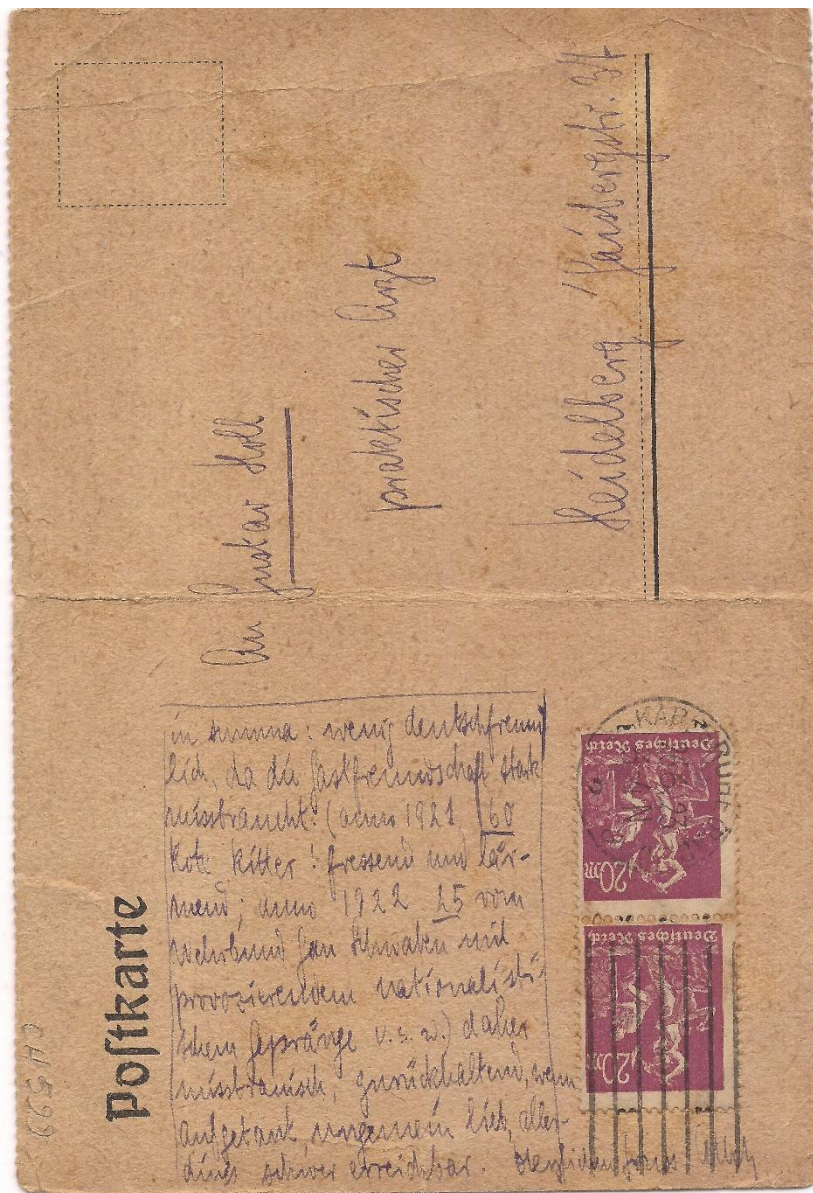 Postkarte
An Gustav Holl
praktischer Arzt
Heidelberg
in summa: wenig deutschfreund
lich, da die Gastfreundschaft stark
missbraucht. (anno 1921 60
Rote Ritter! fressend und lär-
mend; anno 1922 25 vom
Wehrbund Gau Schwaben mit
provozierendem nationalisti-
schem Gepränge u.s.w.) daher
misstrauisch, zurückhaltend, wenn
aufgetaut, ungemein lieb, aller-
dings schwer erreichbar.
Deutsches Reich
20m
Deutsches Reich
20m
CH 599